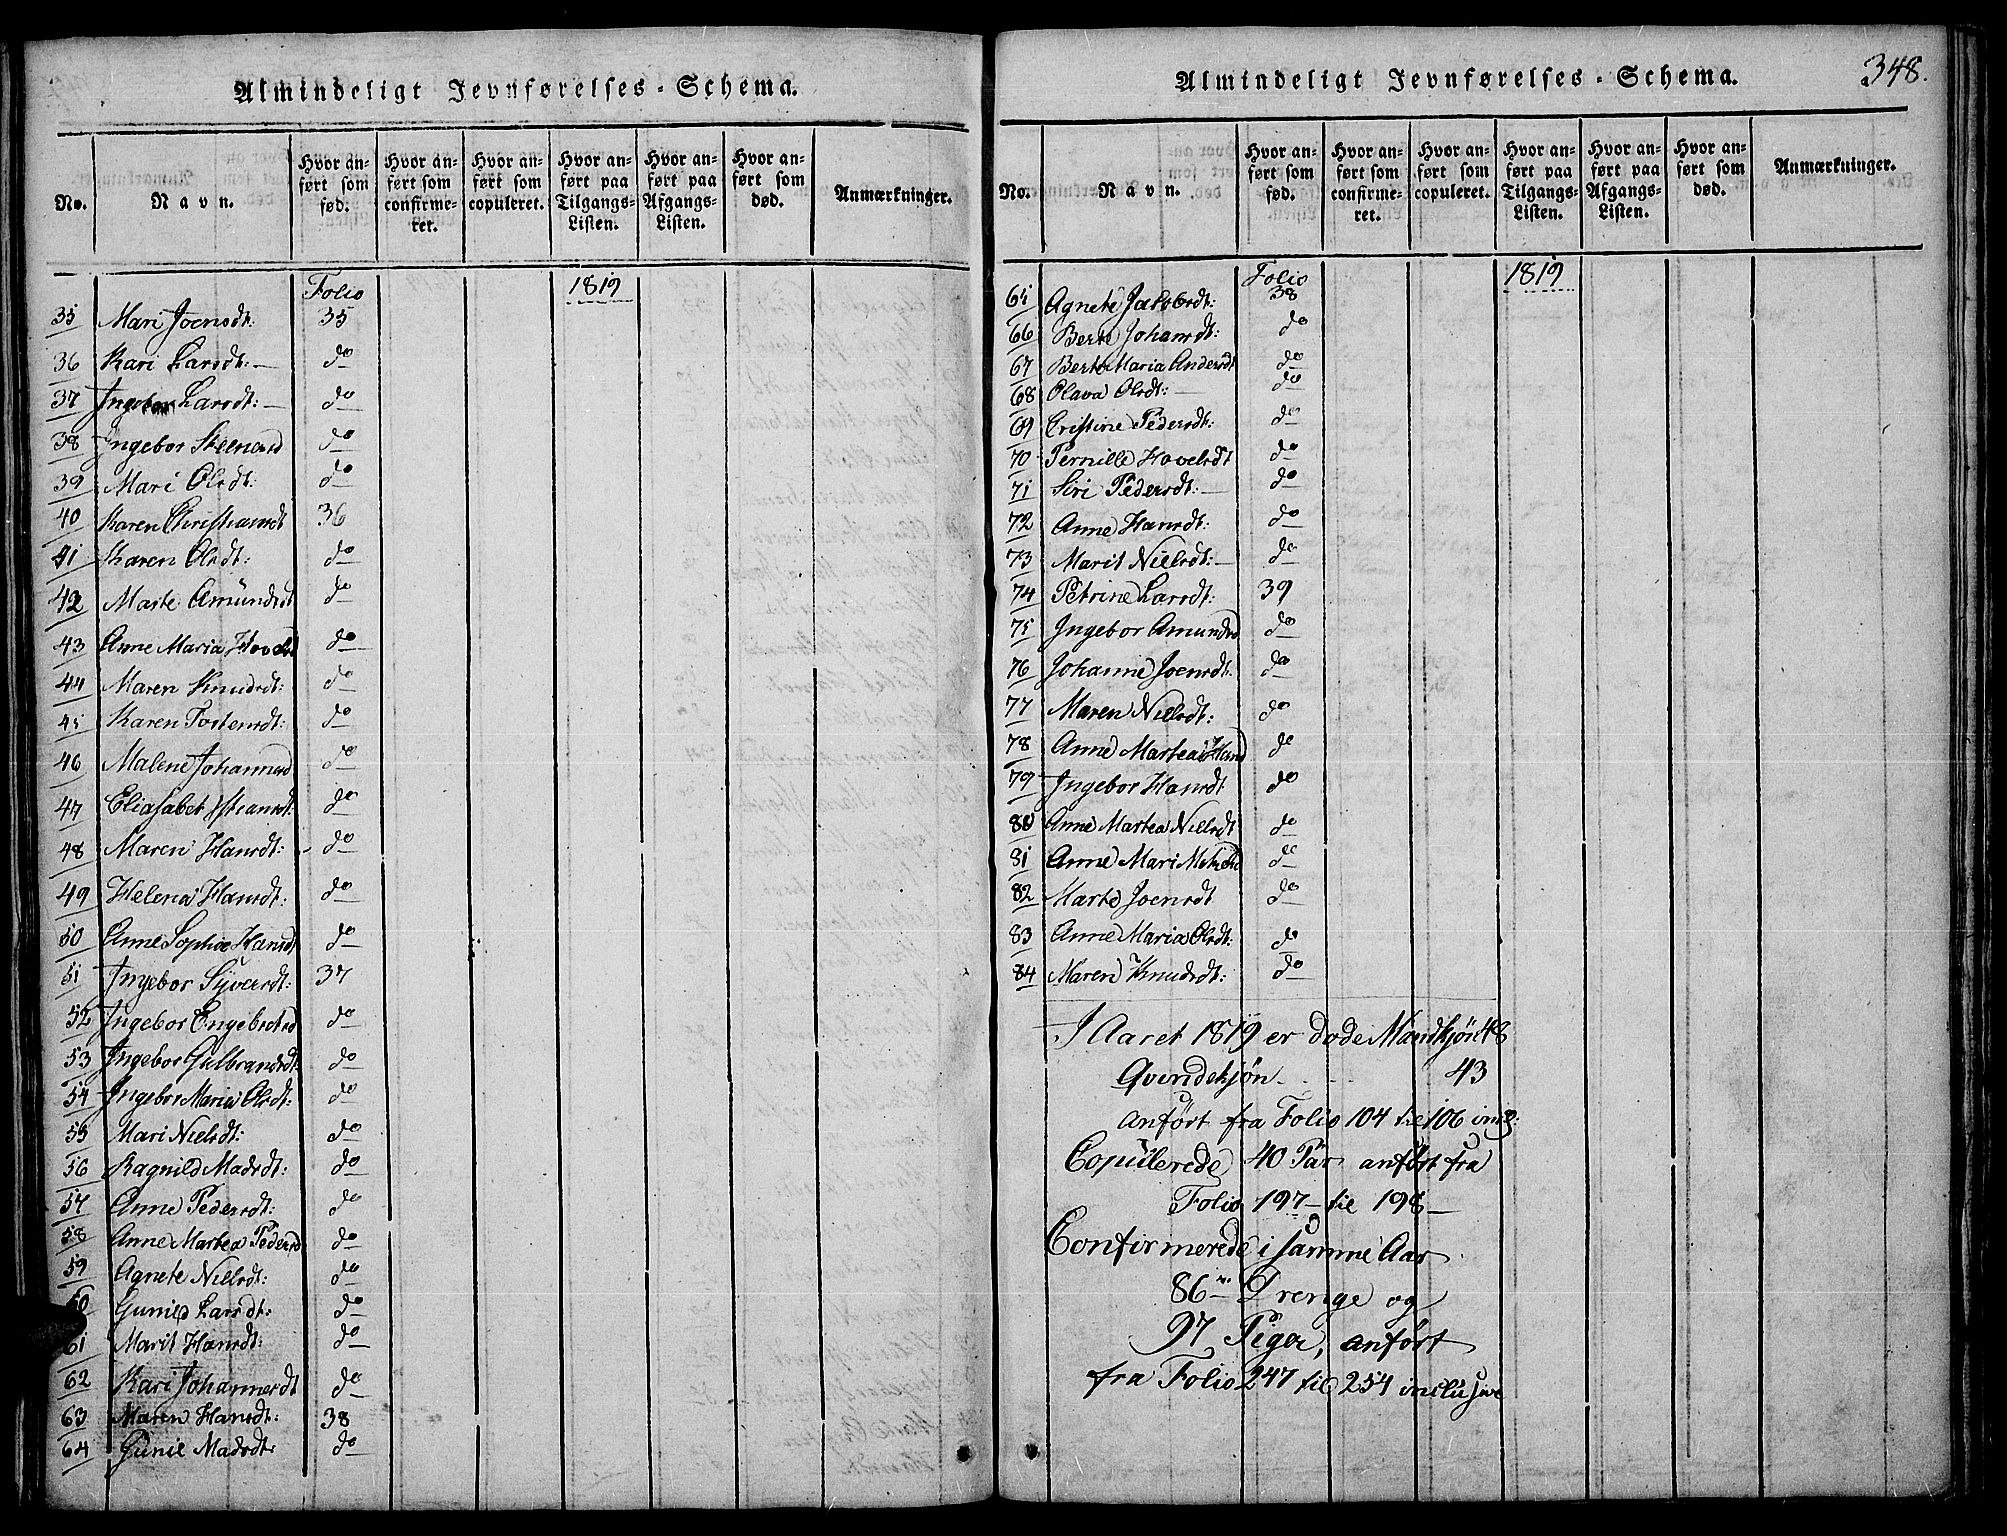 Almindeligt Jevnførelses-Schema.
No.
Navn.
Hvor anført som fød.
Hvor anført som confirmeret.
Hvor anført som copuleret.
Hvor anført paa Tilgangs-Listen.
Hvor anført paa Afgangs-Listen.
Hvor anført som død.
Anmærkninger.
Folio 1819
35 Mari Joensdt: 35
36 Kari Larsdt: do
37 Ingebor Larsdt: do
38 Ingebor Steensd do
39 Mari Olsdt: do
40 Karen Christiansdt 36
41 Karen Olsdt: do
42 Marte Amündsdt do
43 Anne Maria Hovelsd do
44 Maren Knudsdt: do
45 Karen Tostensdt: do
46 Malene Johannesd do
47 Eliasabet Kstiansdt: do
48 Maren Hansdt: do
49 Helena Hansdt: do
50 Anne Sophie Hansdt do
51 Ingebor Syversdt: 37
52 Ingebor Engebretsd do
53 Ingebor Gulbrandsdt: do
54 Ingebor Maria Olsdt: do
55 Mari Nielsdt: do
56 Ragnild Madsdt: do
57 Anne Pedersdt: do
58 Anne Martea Pedersd do
59 Agnete Nielsdt: do
60 Gunild Larsdt: do
61 Marit Hansdt: do
62 Kari Johannesdt do
63 Maren Hansdt: 38
64 Gunil Madsdt: do
348.
Almindeligt Jevnførelses-Schema.
No.
Navn.
Hvor anført som fød.
Hvor anført som confirmeret.
Hvor anført som copuleret.
Hvor anført paa Tilgangs-Listen.
Hvor anført paa Afgangs-Listen.
Hvor anført som død.
Anmærkninger.
Folio 1819
65 Agnete Jakobsdt: 38
66 Berte Johansdt: do
67 Berte Maria Andersdt do
68 Olava Olsdt: do
69 Cristine Pedersdt: do
70 Pernille Hovelsdt do
71 Siri Pedersdt: do
72 Anne Hansdt: do
73 Marit Nielsdt: do
74 Petrine Larsdt: 39
75 Ingebor Amundsd do
76 Johanne Joensdt: do
77 Maren Nielsdt: do
78 Anne Martea Hansd do
79 Ingebor Hansdt: do
80 Anne Martea Nielsdt do
81 Anne Mari do
82 Marte Joensdt do
83 Anne Maria Olsdt: do
84 Maren Knudsdt: do
I Aaret 1819 er døde Mandkjön 48
Qvindekjön 43
anført fra Folio 104 til 106 incl:
Copülerede 40 Par anført fra
Folio 197 til 198
Confirmerede i samme Aar
86 Drenge og
97 Piger, anført
fra Folio 247 til 254 inclusive